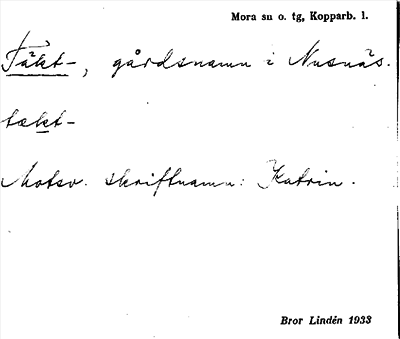 Mora su o. tg, Kopparb. l.
Täkt-, gårdsnamn i Nusnäs.
tækt-
Motsv. skriftnamn: Katrin.
Bror Lindén 1933